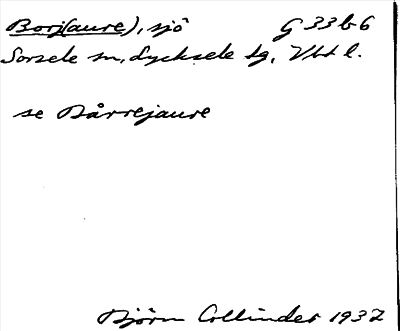 Borj(aure), sjö G 33 b 6
Sorsele sn, Lycksele tg, Vbt l.
se Bårrejaure
Björn Collinder 1937